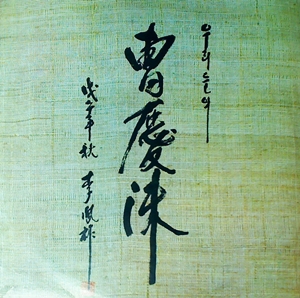 우리들의
曺慶洙
戊午年 秋 李鳳祚